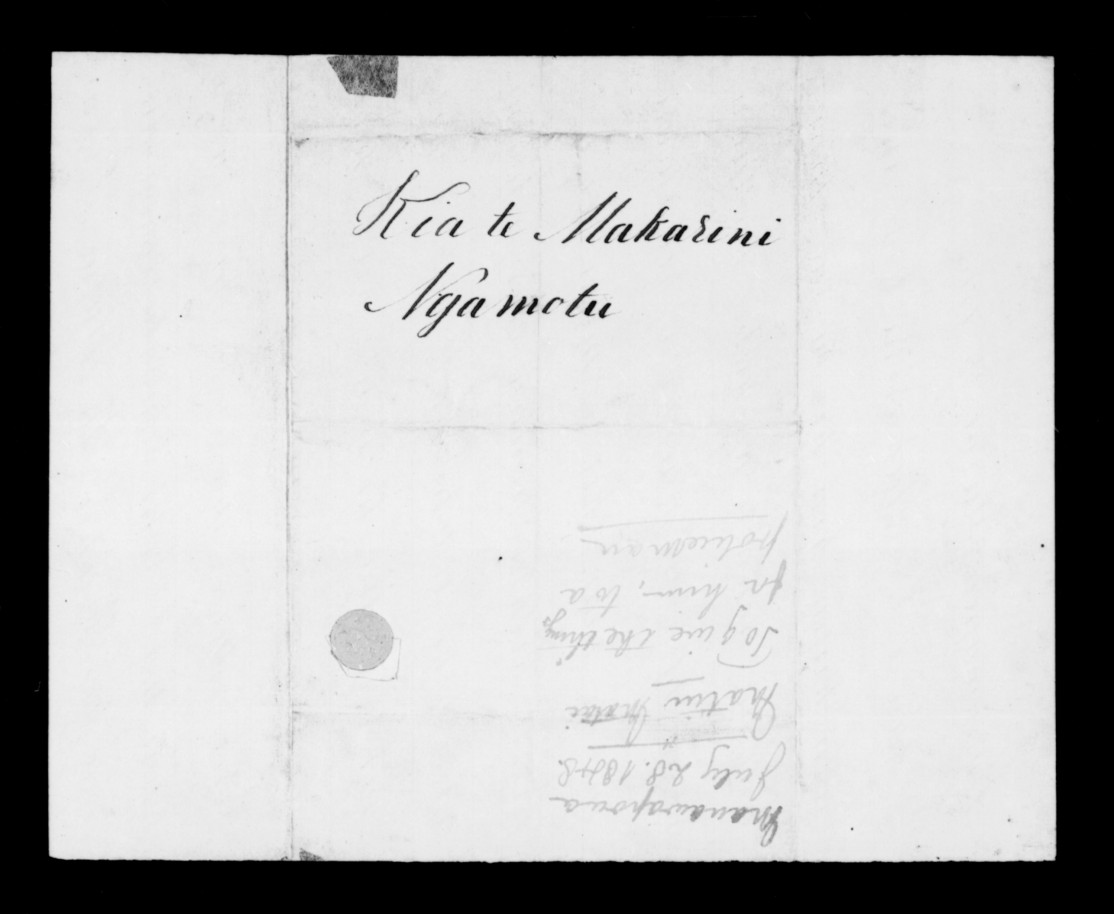 Kia te Makarini
Ngamotu
Manawapou
July 28. 1848
Matiu
To give the things
for him, to a
policeman